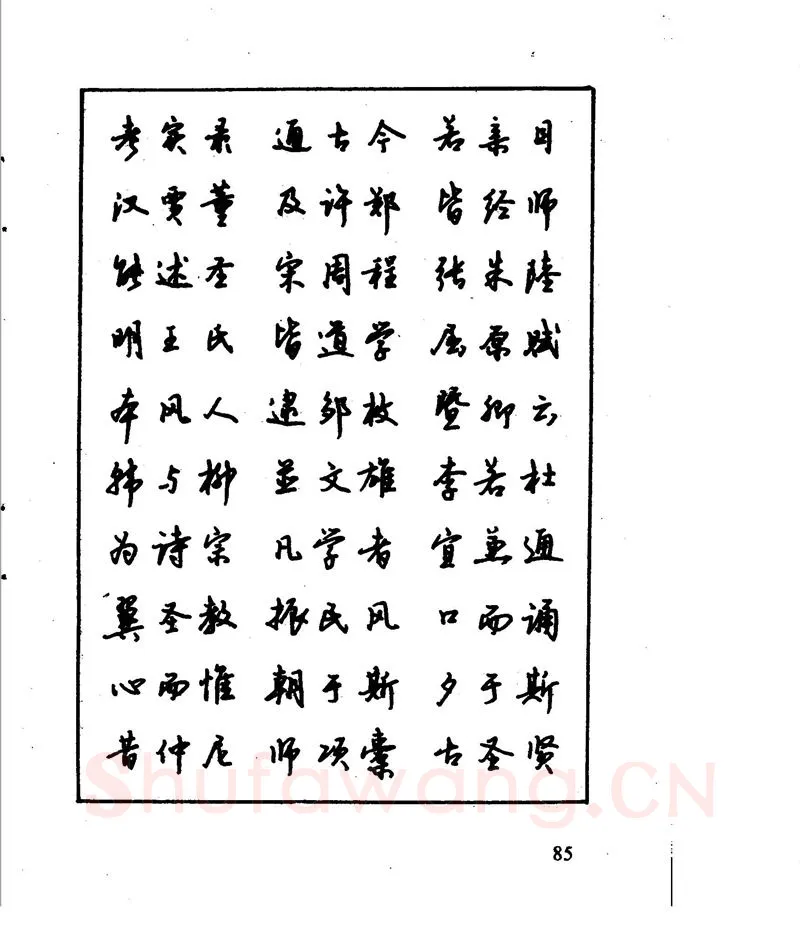 考实录 通古今 若亲目
汉贾董 及许郑 皆经师
能述圣 宋周程 张朱陆
明王氏 皆道学 屈原赋
本风人 逮邹枚 暨卿云
韩与柳 並文雄 李若杜
为诗宗 凡学者 宜兼通
翼圣教 振民风 口而诵
心而惟 朝于斯 夕于斯
昔仲尼 师项橐 古圣贤
Shufawang.CN
85